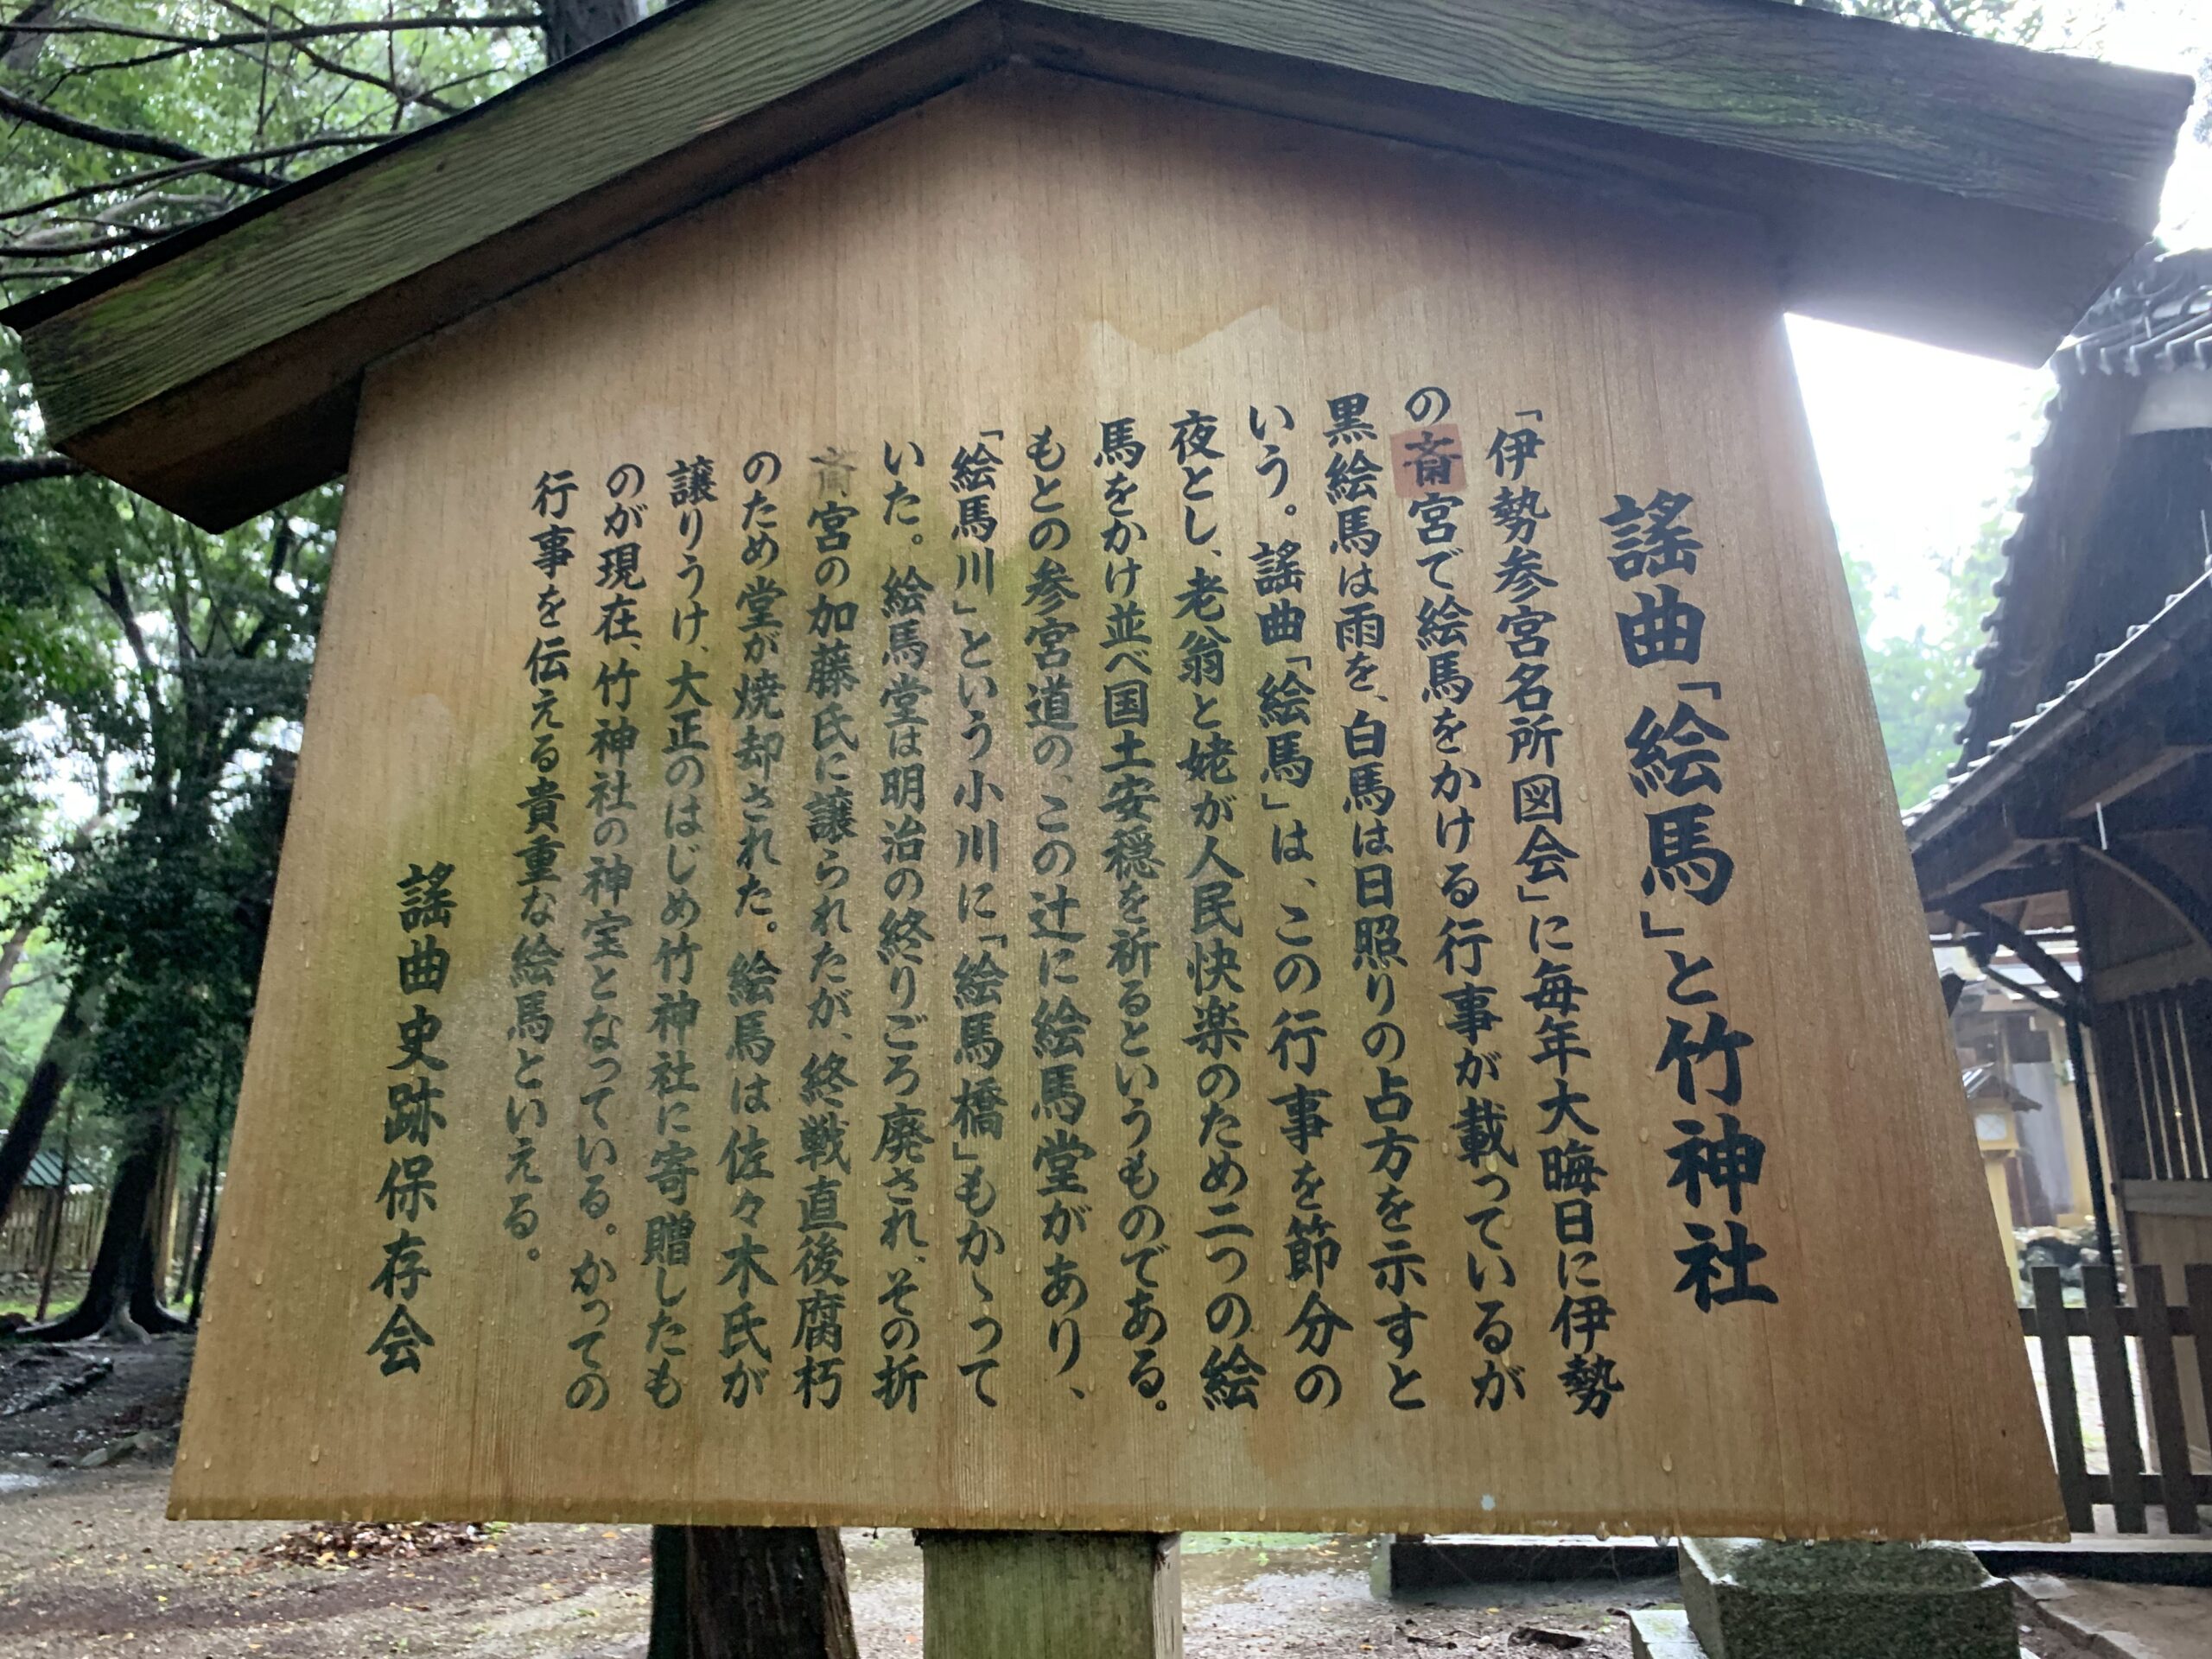 謡曲「絵馬」と竹神社
「伊勢参宮名所図会」に毎年大晦日に伊勢
の斎宮で絵馬をかける行事が載っているが
黒絵馬は雨を、白馬は日照りの占方を示すと
いう。謡曲「絵馬」は、この行事を節分の
夜とし、老翁と姥が人民快楽のため二つの絵
馬をかけ並べ国土安穏を祈るというものである。
もとの参宮道の、この辻に絵馬堂があり、
「絵馬川」という小川に「絵馬橋」もかゝって
いた。絵馬堂は明治の終りごろ廃され、その折
斎宮の加藤氏に譲られたが、終戦直後腐朽
のため堂が焼却された。絵馬は佐々木氏が
譲りうけ、大正のはじめ竹神社に寄贈したも
のが現在、竹神社の神宝となっている。かっての
行事を伝える貴重な絵馬といえる。
謡曲史跡保存会